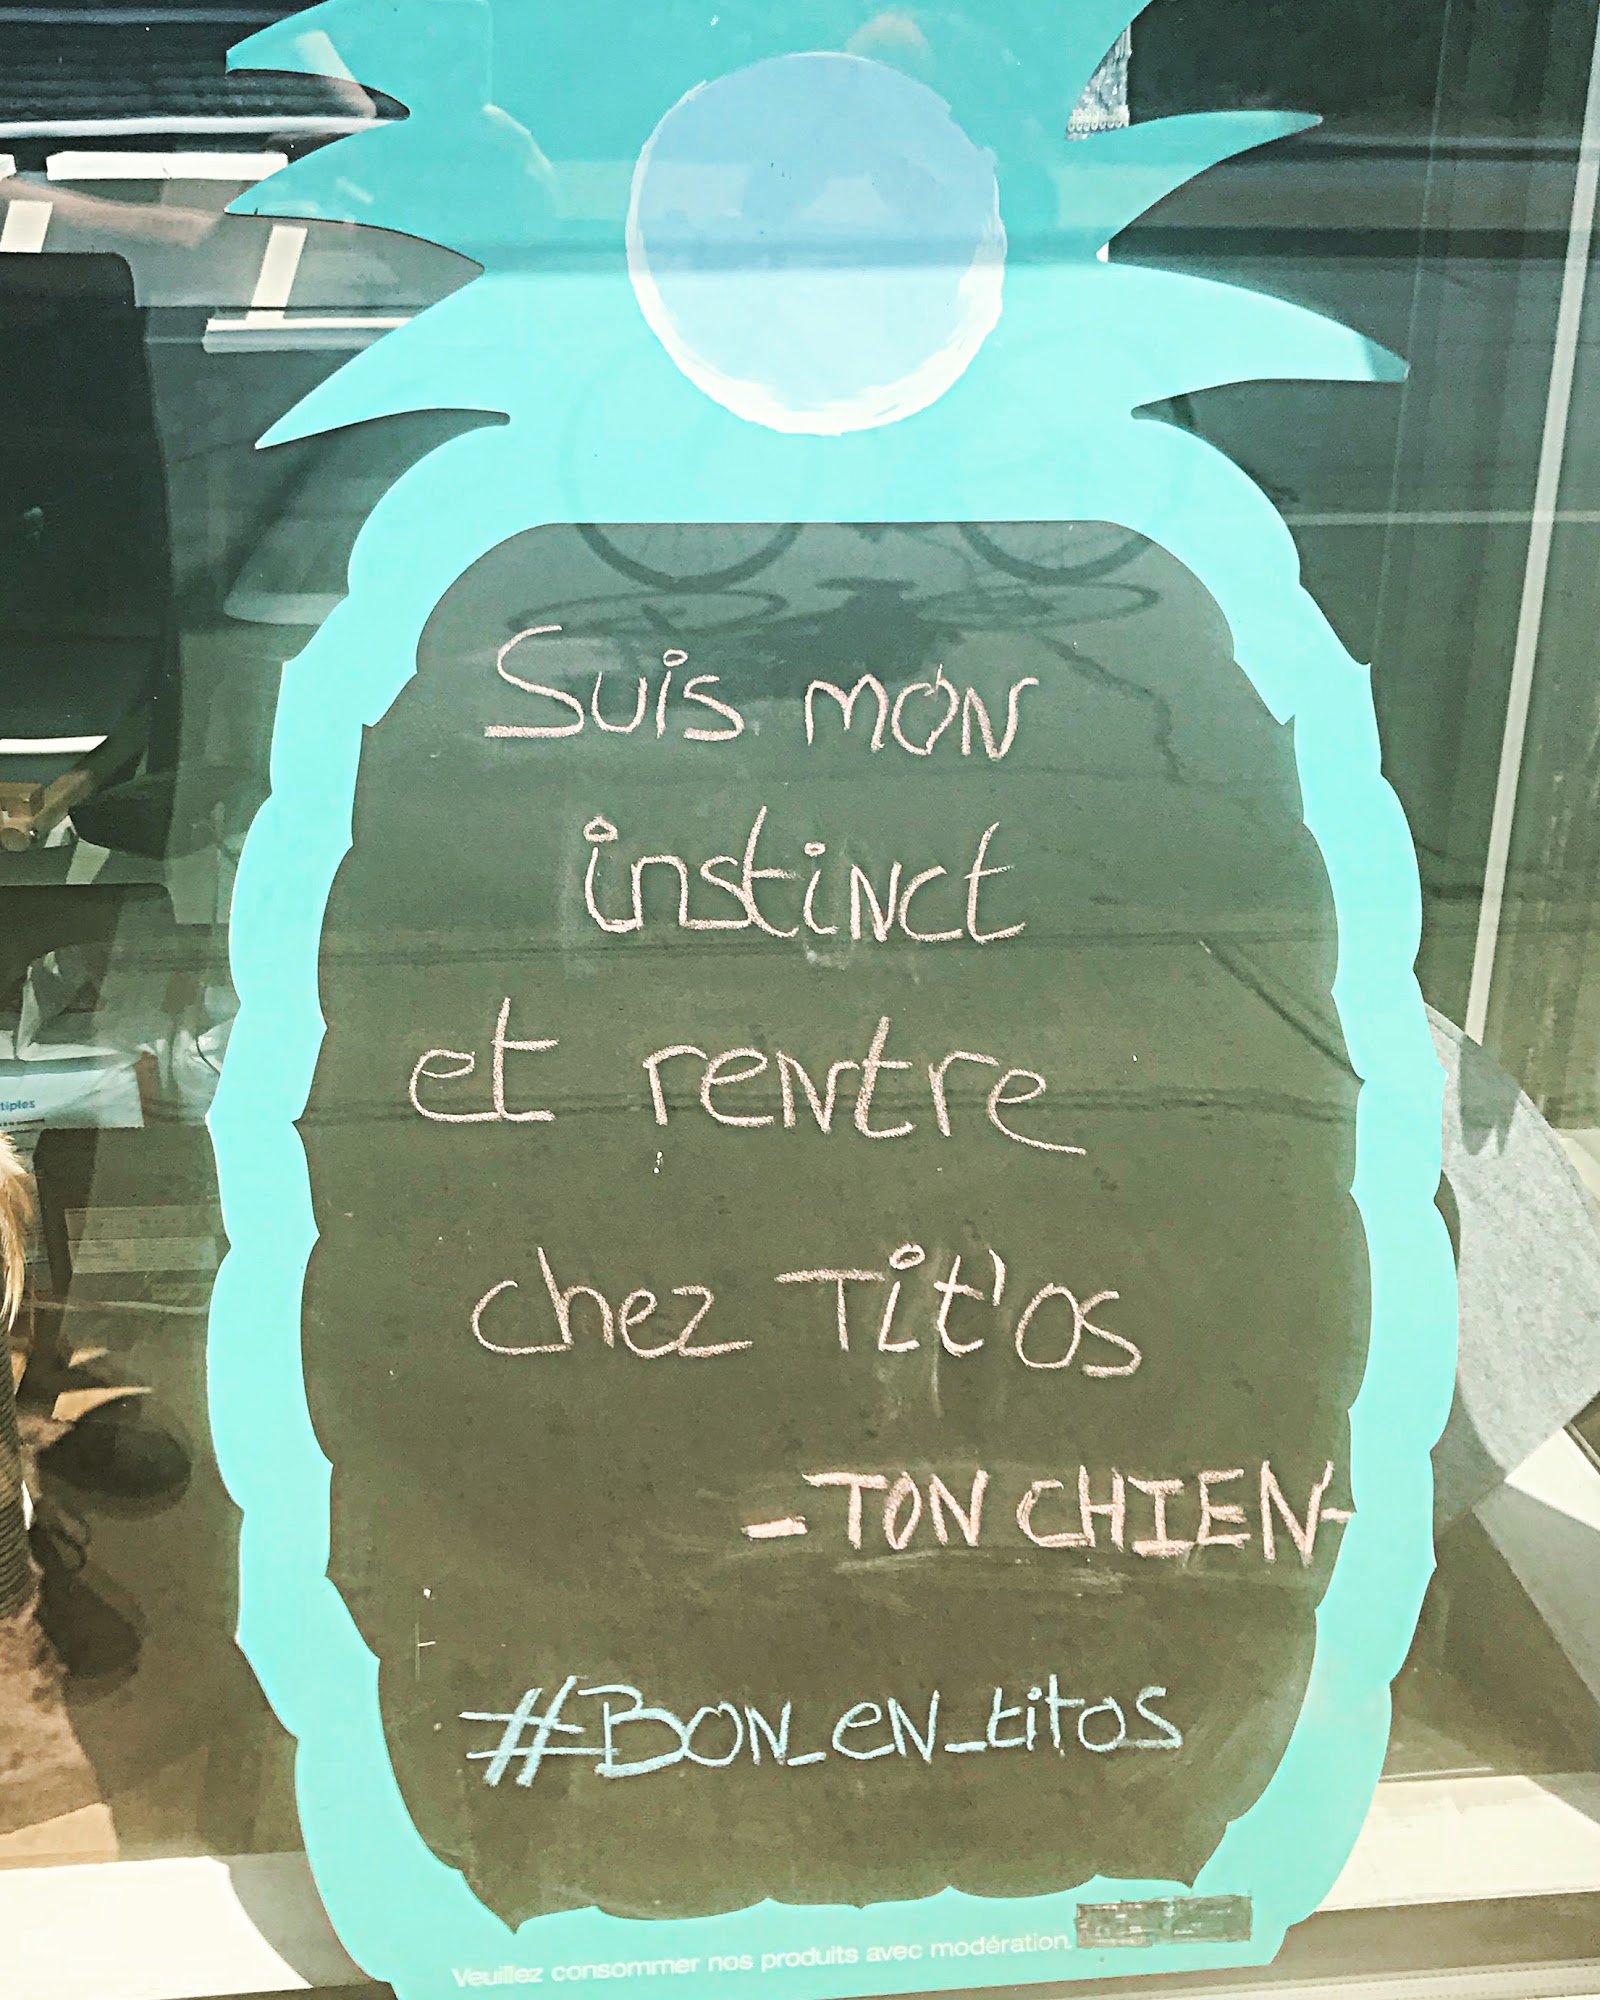 Suis mon
instinct
et rentre
chez Tit'os
- TON CHIEN -
#Bon_en_titos
Veuillez consommer nos produits avec modération.
tiples